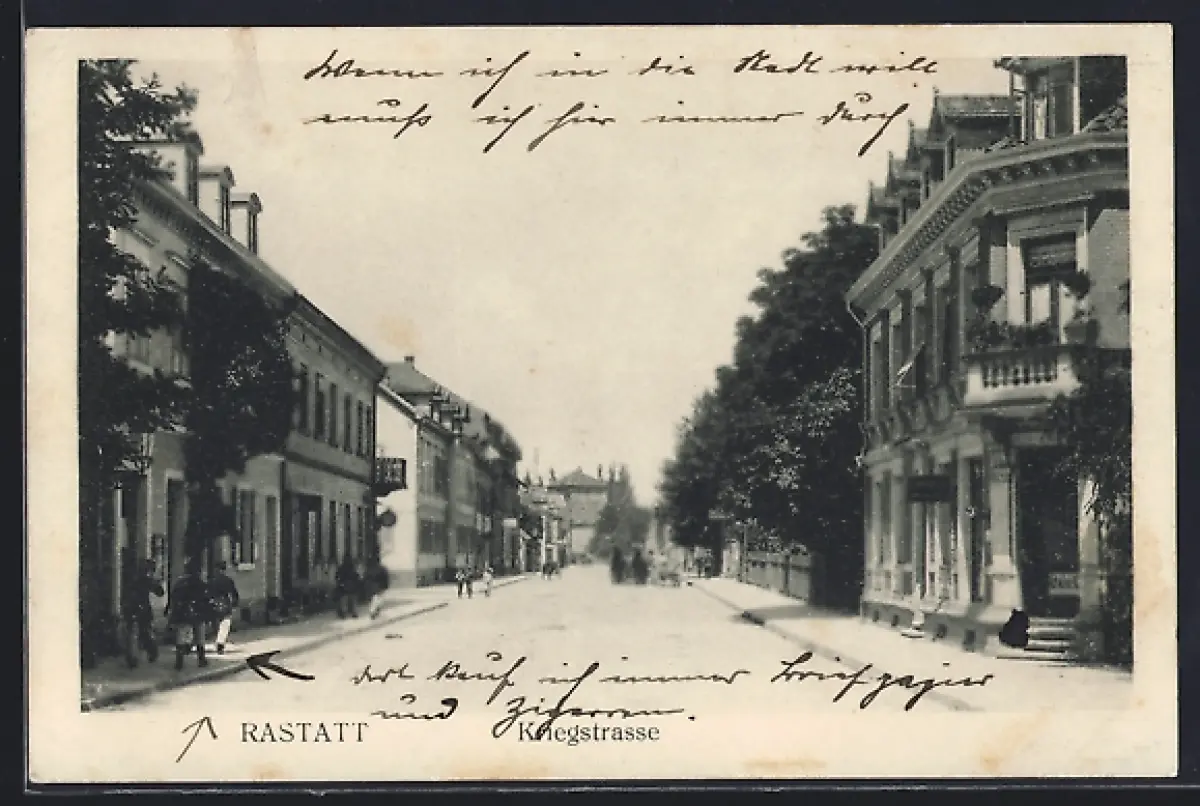 Wenn ich in die Stadt will
muß ich hier immer durch
dort kauf ich immer Briefpapier
und Zigarren.
RASTATT Kriegstrasse